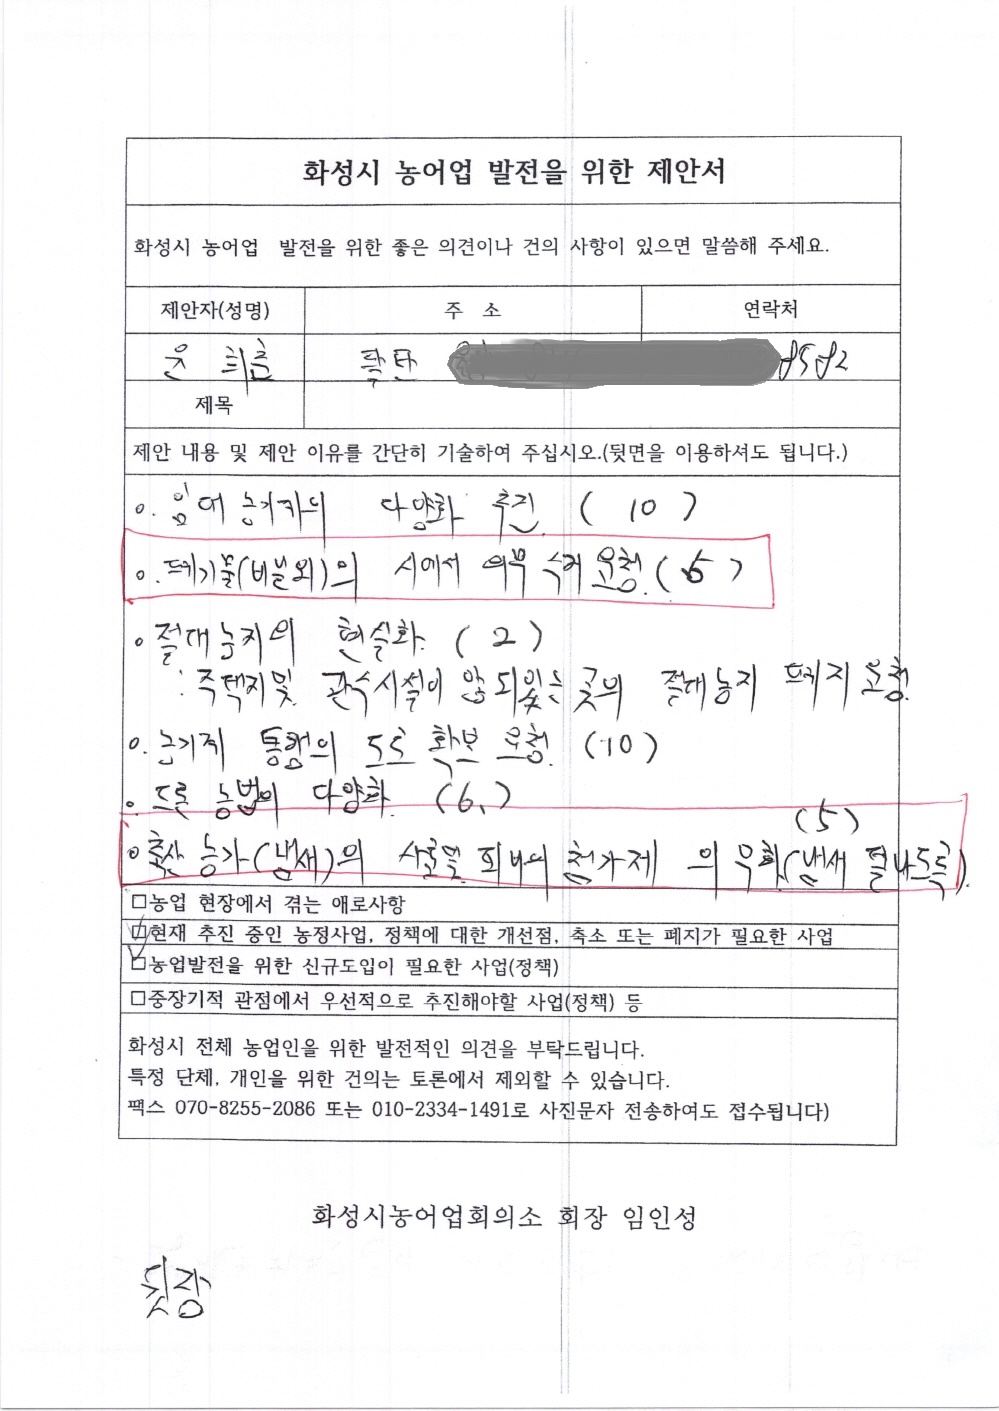 화성시 농어업 발전을 위한 제안서
화성시 농어업 발전을 위한 좋은 의견이나 건의 사항이 있으면 말씀해 주세요.
제안자(성명) 주 소 연락처
윤 희 8582
제목
제안 내용 및 제안 이유를 간단히 기술하여 주십시오.(뒷면을 이용하셔도 됩니다.)
o. 임대 농기카의 다양화 추진 ( 10 )
o. 페기물(비닐외)의 시에서 의무 수거 요청. ( 5 )
o 절대농지의 현실화. ( 2 )
: 주택지및 관수시설이 않되있는 곳의 절대농지 페지 요청
o. 농기계 통행의 도로 확보 요청. (10)
o. 드론 농법의 다양화 (6.)
(5)
o 축산 농가(냄새)의 사료및 첨가제 의 무화(냄새 덜나도록).
□농업 현장에서 겪는 애로사항
□현재 추진 중인 농정사업, 정책에 대한 개선점, 축소 또는 폐지가 필요한 사업
□농업발전을 위한 신규도입이 필요한 사업(정책)
□중장기적 관점에서 우선적으로 추진해야할 사업(정책) 등
화성시 전체 농업인을 위한 발전적인 의견을 부탁드립니다.
특정 단체, 개인을 위한 건의는 토론에서 제외할 수 있습니다.
팩스 070-8255-2086 또는 010-2334-1491로 사진문자 전송하여도 접수됩니다)
화성시농어업회의소 회장 임인성
뒷장